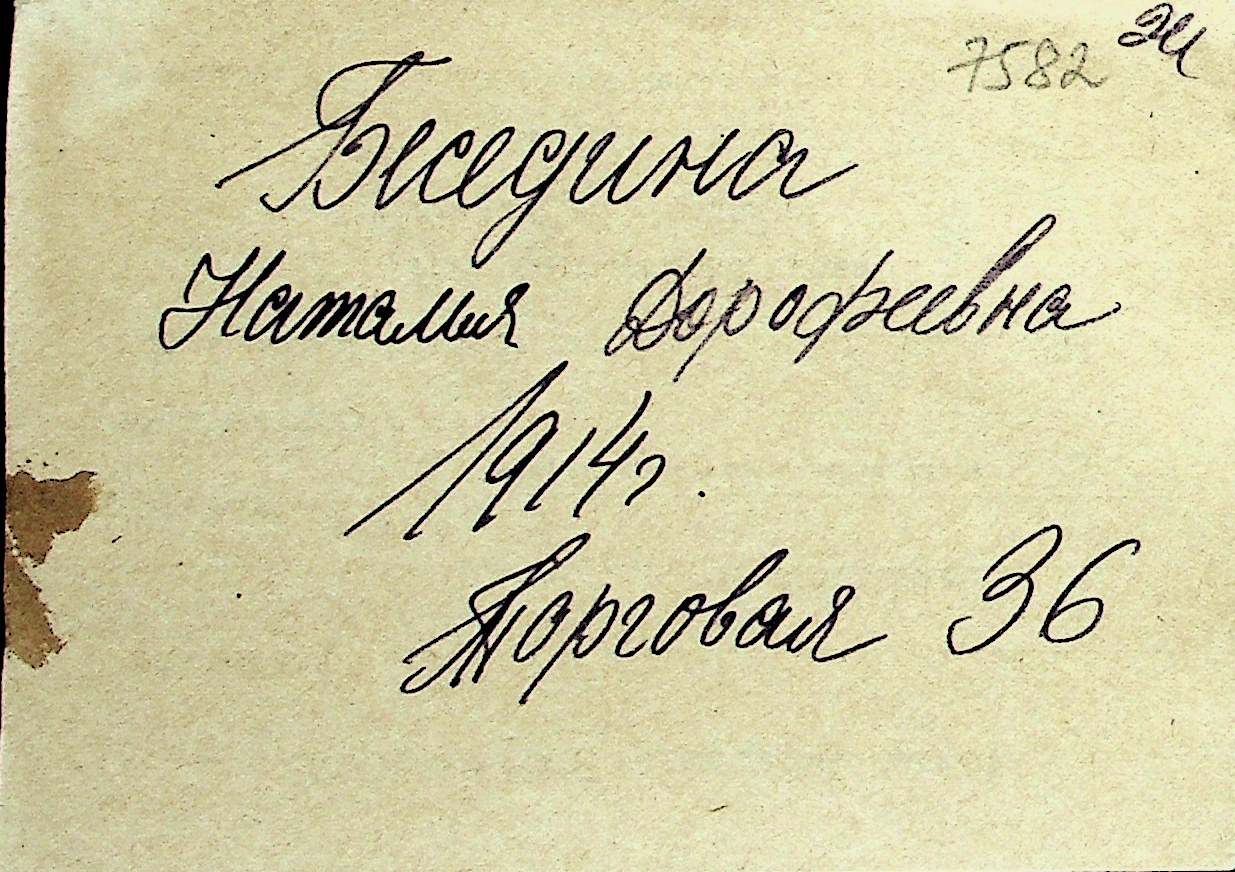 7582
Беседина
Наталия Дорофеевна
1914г.
Торговая 36